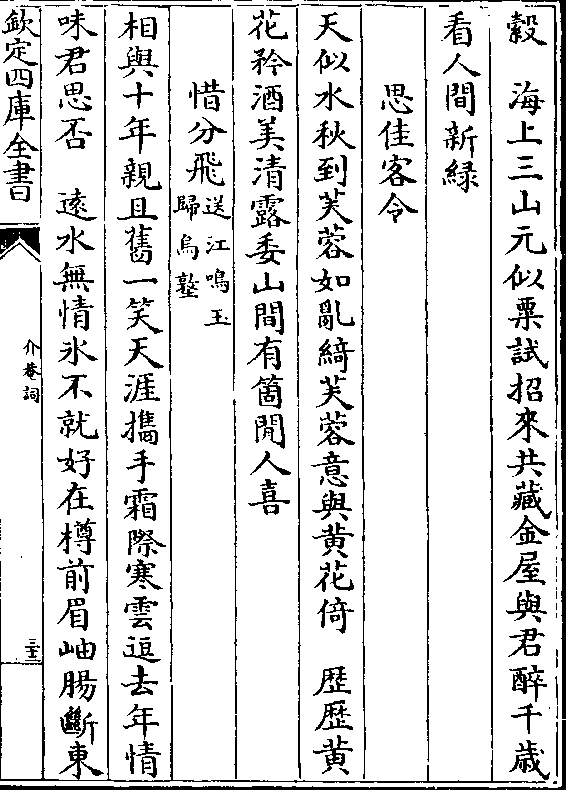 縠　海上三山元似粟試招來共藏金屋與君醉千歳
看人間新綠
思佳客令
天似水秋到芙蓉如亂綺芙蓉意與黄花倚　歴歴黄
花矜酒美清露委山間有箇閒人喜
惜分飛送江鳴玉歸烏墪
相與十年親且舊一笑天涯攜手霜際寒雲逗去年情
味君思否　遠水無情氷不就好在樽前眉岫腸斷東
欽定四庫全書
介菴詞
三十三